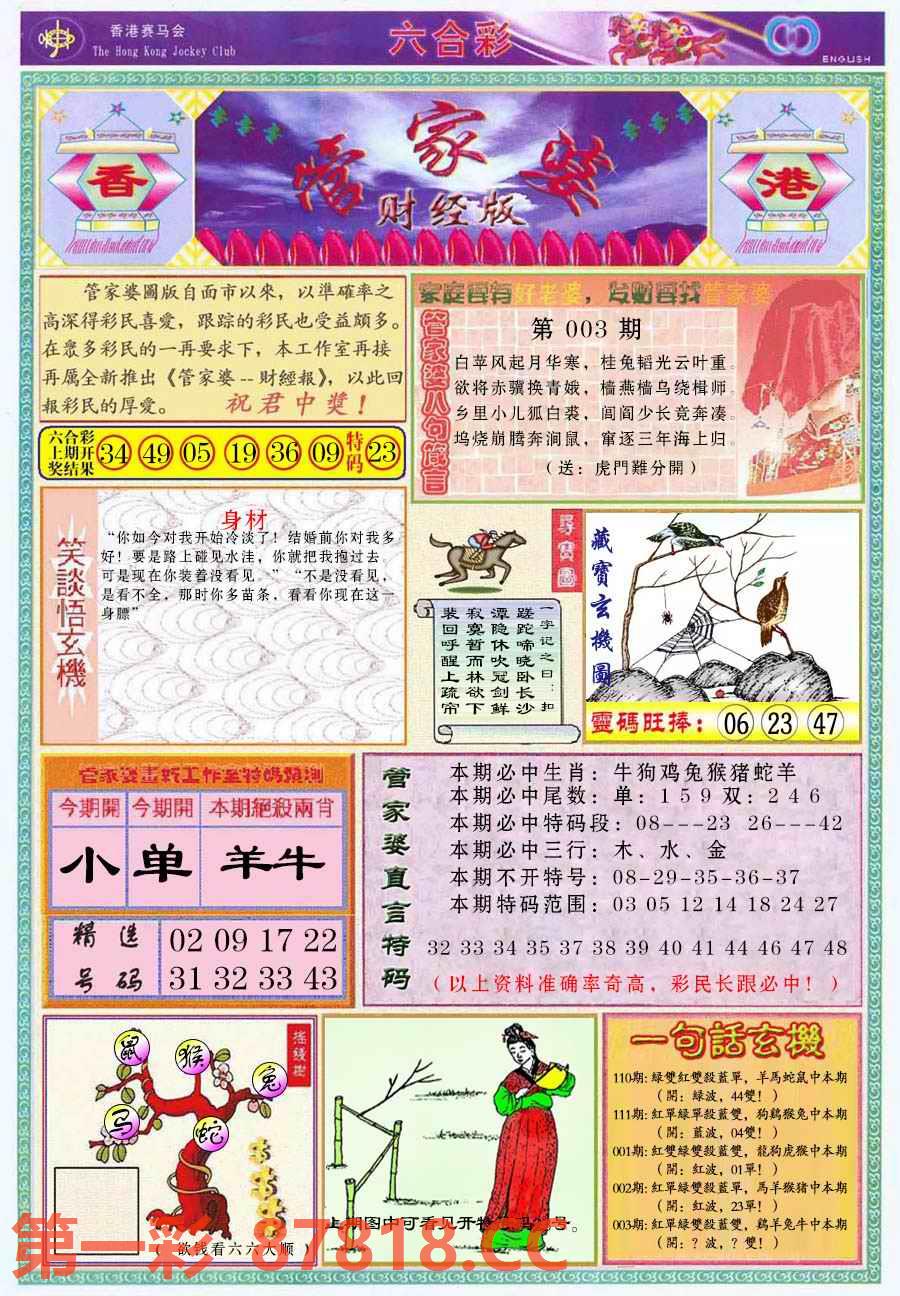 香港赛马会
The Hong Kong Jockey Club
六合彩
ENGLISH
香
管家婆
财经版
港
管家婆圖版自面市以來，以準確率之
高深得彩民喜愛，跟踪的彩民也受益頗多。
在眾多彩民的一再要求下，本工作室再接
再厲全新推出《管家婆--財經報》，以此回
報彩民的厚愛。 祝君中獎！
六合彩
上期开
奖结果
34 49 05 19 36 09 特码 23
家庭要有好老婆，发财要找管家婆
管家婆八句箴言
第 003 期
白苹风起月华寒，桂兔韬光云叶重。
欲将赤骥换青娥，樯燕樯乌绕楫师。
乡里小儿狐白裘，闾阎少长竞奔凑。
坞烧崩腾奔涧鼠，窜逐三年海上归。
（送：虎門難分開）
笑談悟玄機
身材
“你如今对我开始冷淡了！结婚前你对我多
好！要是路上碰见水洼，你就把我抱过去，
可是现在你装着没看见。”“不是没看见，
是看不全，那时你多苗条，看看你现在这一
身膘”
尋寶圖
一字记之曰：扣
蹉跎啼晓卧长沙
潭隐休吹冠剑鲜
寂寞暂而林欲下
装回呼醒上疏帘
藏寶玄機圖
靈碼旺捧：06 23 47
管家婆畫跨工作室特碼預測
今期開 今期開 本期絕殺兩肖
小 单 羊牛
精选
号码
02 09 17 22
31 32 33 43
管家婆直言特码
本期必中生肖：牛狗鸡兔猴猪蛇羊
本期必中尾数：单：1 5 9 双：2 4 6
本期必中特码段：08---23 26---42
本期必中三行：木、水、金
本期不开特号：08-29-35-36-37
本期特码范围：03 05 12 14 18 24 27
32 33 34 35 37 38 39 40 41 44 46 47 48
（以上资料准确率奇高，彩民长跟必中！）
摇錢樹
鼠
猴
兔
马
蛇
（欲钱看六六大顺）
上期图中可看见开特
号。
一句話玄機
110期：绿雙紅雙殺藍單，羊馬蛇鼠中本期
（開：緑波，44雙！）
111期：紅單緑單殺藍雙，狗鷄猴兔中本期
（開：藍波，04雙！）
001期：紅雙緑雙殺藍雙，龍狗虎猴中本期
（開：紅波，01單！）
002期：紅單緑雙殺藍單，馬羊猴猪中本期
（開：紅波，23單！）
003期：紅單緑雙殺藍雙，鷄羊兔牛中本期
（開：？波，？雙！）
第一彩 87818.CC